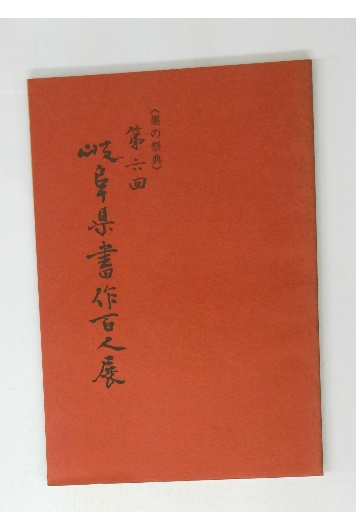 《墨の祭典》
第六回
岐阜県書作百人展